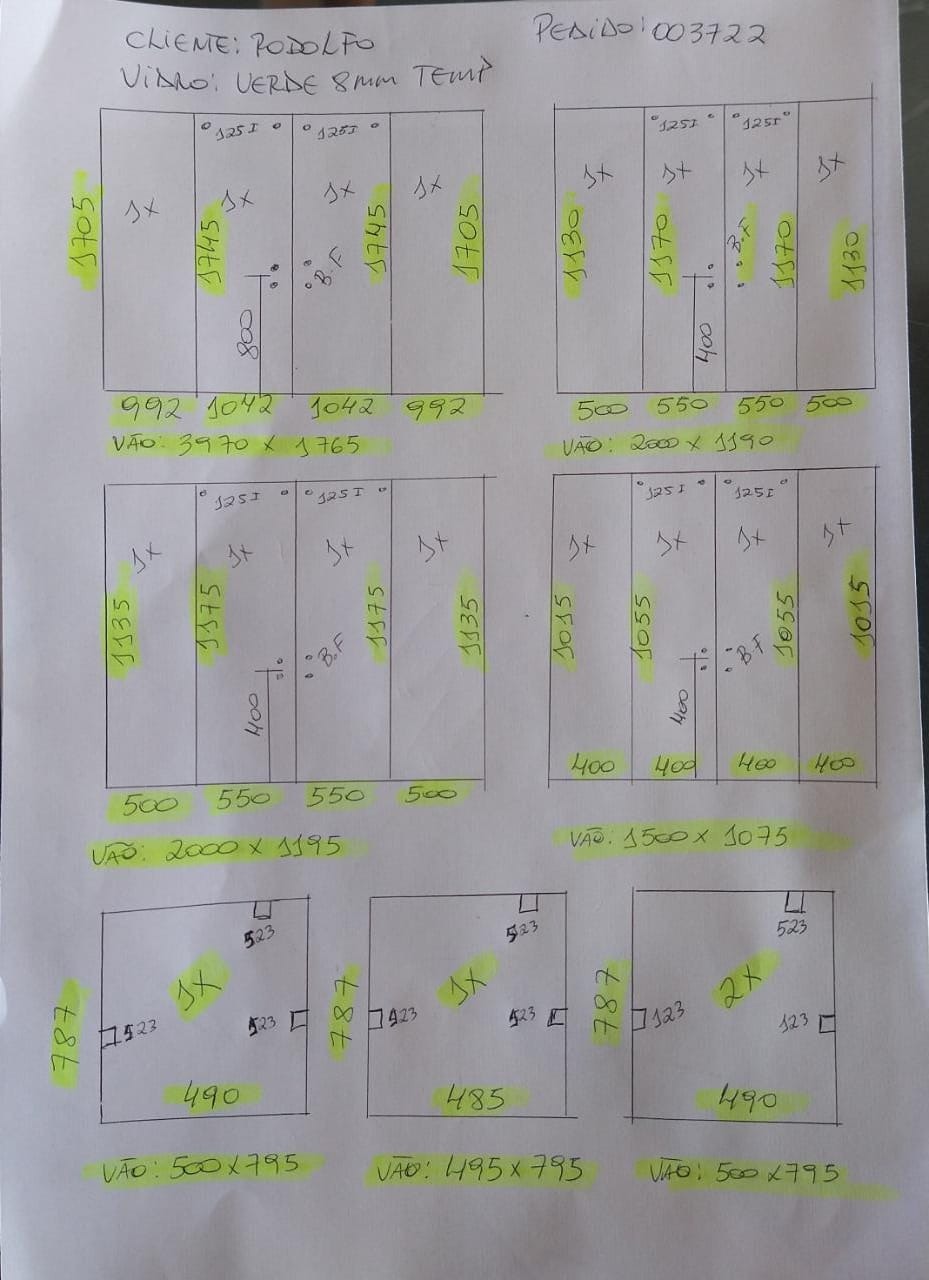 CLIENTE: RODOLFO
PEDIDO: 003722
VIDRO: VERDE 8mm TEMP
125I 125I
1x 1x 1x 1x
1705 1745 1745 1705
B.F
800
992 1042 1042 992
VÃO: 3970 x 1765
125I 125I
1x 1x 1x 1x
1130 1170 1170 1130
B.F
400
500 550 550 500
VÃO: 2000 x 1190
125I 125I
1x 1x 1x 1x
1135 1175 1175 1135
B.F
400
500 550 550 500
VÃO: 2000 x 1195
125I 125I
1x 1x 1x 1x
1015 1055 1055 1015
B.F
400
400 400 400 400
VÃO: 1500 x 1075
523
1x
787
523 523
490
VÃO: 500 x 795
523
1x
787
523 523
485
VÃO: 495 x 795
523
2x
787
123 123
490
VÃO: 500 x 795